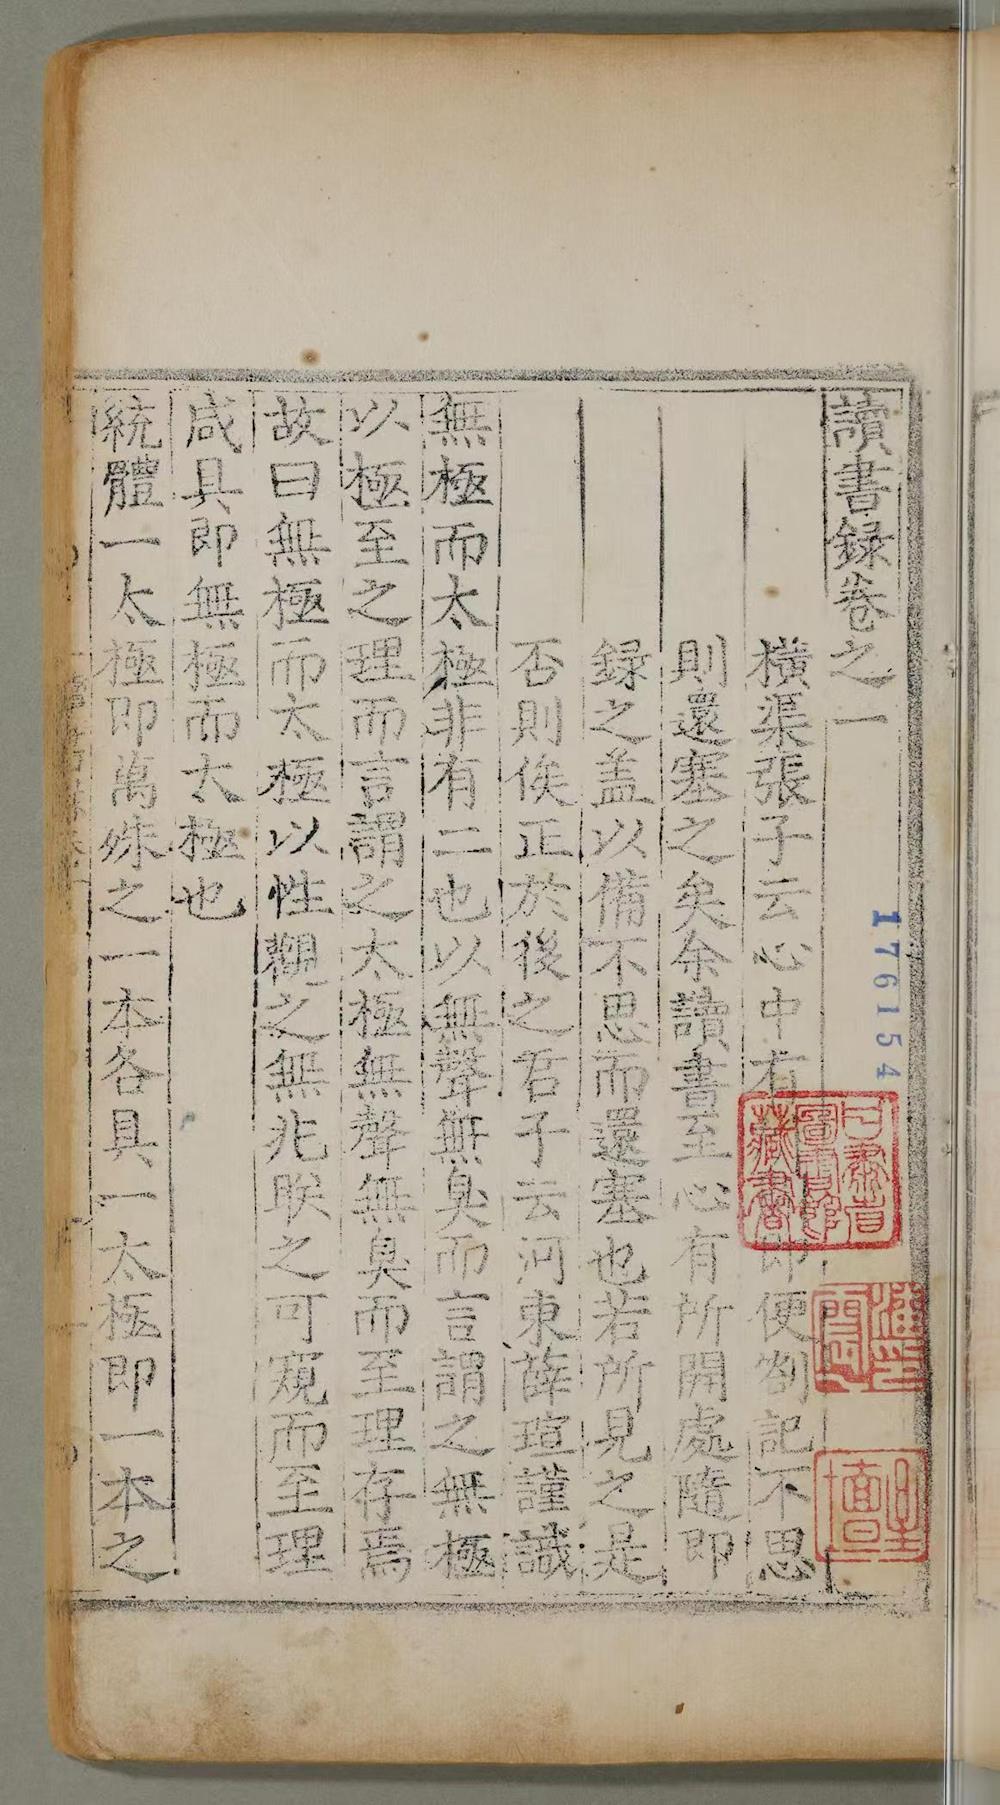 讀書錄卷之一
橫渠張子云心中有所開即便劄記不思
則還塞之矣余讀書至心有所開處隨即
錄之盖以備不思而還塞也若所見之是
否則俟正於後之君子云河東薛瑄謹識
無極而太極非有二也以無聲無臭而言謂之無極
以極至之理而言謂之太極無聲無臭而至理存焉
故曰無極而太極以性觀之無兆朕之可窺而至理
咸具即無極而太極也
統體一太極即萬殊之一本各具一太極即一本之
176154
藏書